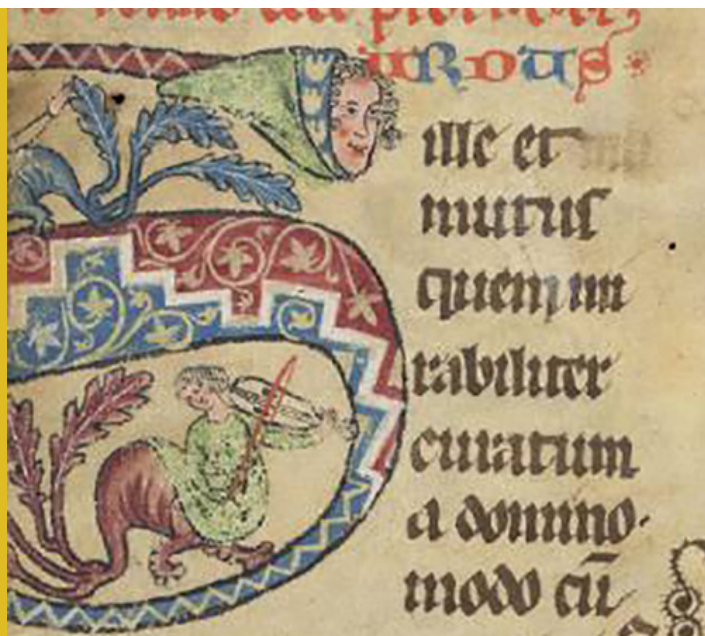 URDUS
ille et
mutus
quem mi
rabiliter
curatum
a domino.
modo cū